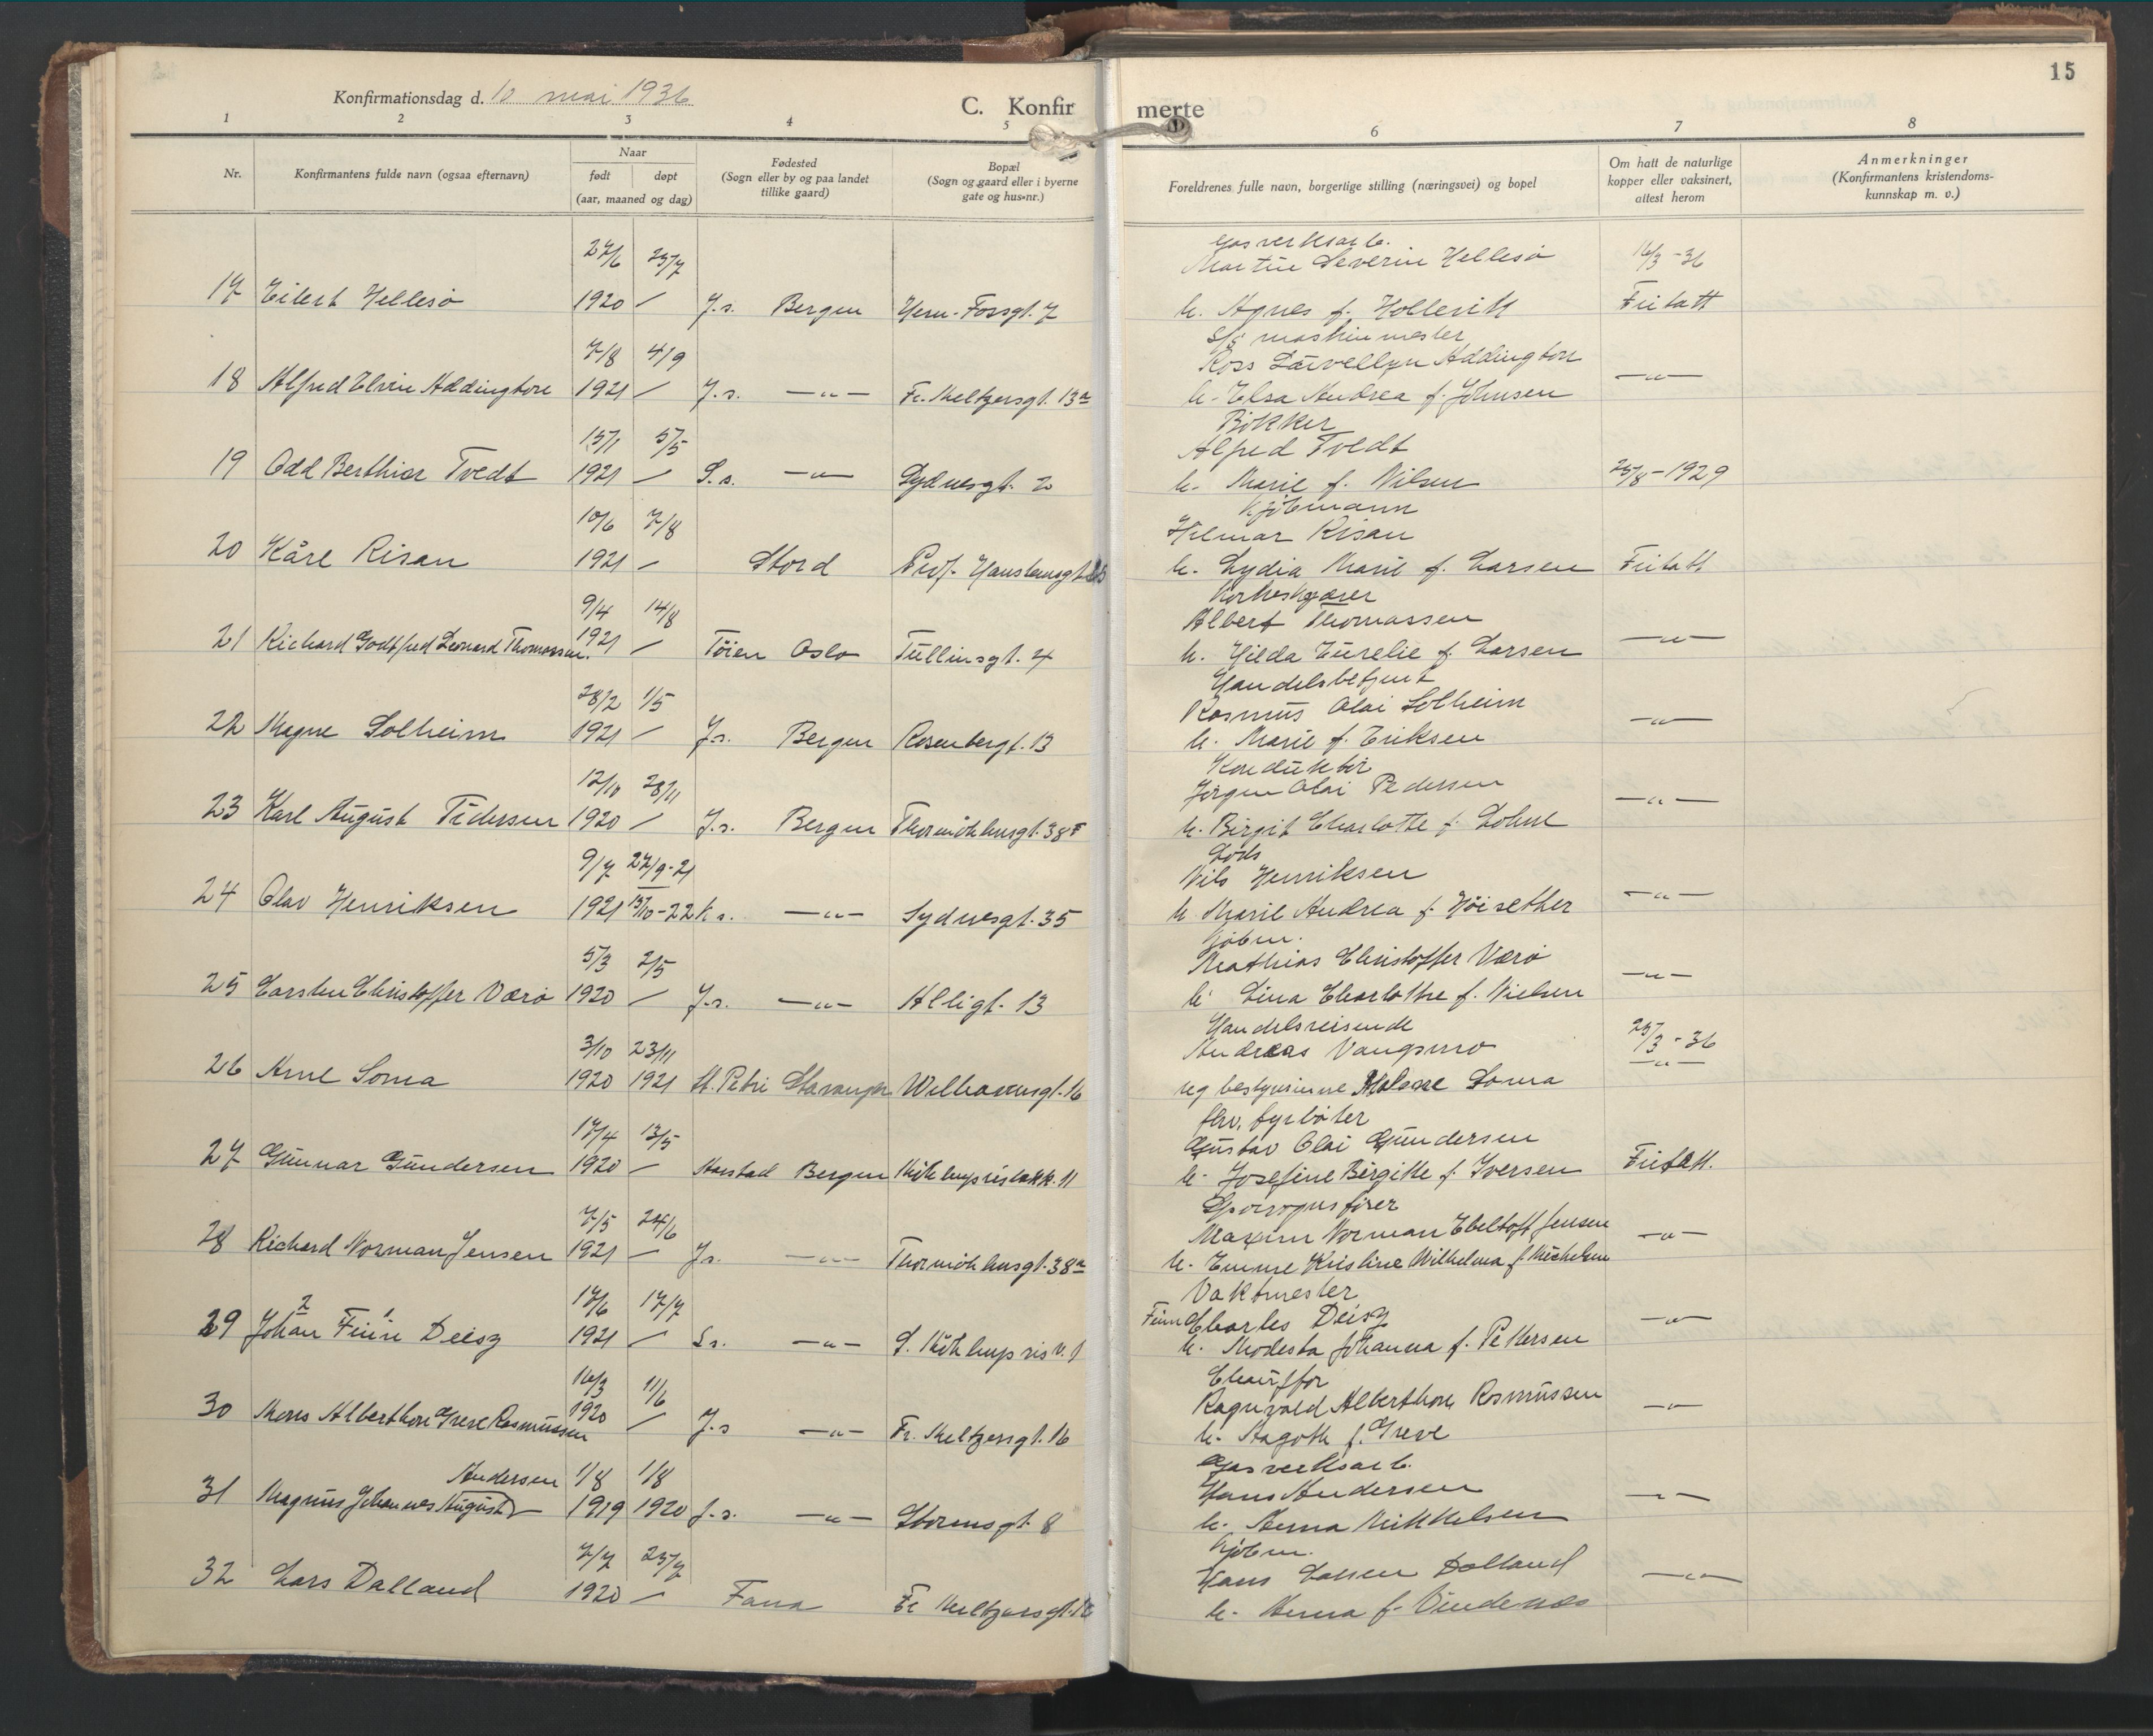 15
Konfirmationsdag d. 10 mai 1936
C. Konfirmerte
1 2 3 4 5 6 7 8
Nr.
Konfirmantens fulde navn (ogsaa efternavn)
Naar
født døpt
(aar, maaned og dag)
Fødested
(Sogn eller by og paa landet
tillike gaard)
Bopæl
(Sogn og gaard eller i byerne
gate og hus-nr.)
Foreldrenes fulle navn, borgerlige stilling (næringsvei) og bopel
Om hatt de naturlige
kopper eller vaksinert,
attest herom
Anmerkninger
(Konfirmantens kristendoms-
kunnskap m. v.)
27/6 25/7 gasverksarb.
Martin Severin Hellesö 16/3-36
17 Eilert Hellesö 1920 / J.s. Bergen Herm-Fossgt. 7 h. Agnes f. Fritatt
7/8 4/9 S/s maskinmester
Ross Addington
18 Alfred Elvin Addington 1921 / J.s. —"— Fr. Meltzersgt. 13a h. Elsa Andrea f. Johnsen —"—
15/1 5/5 Bökker
Alfred Tvedt
19 Odd Berthier Tvedt 1921 / S.s. —"— Sydnesgt. 20 h. Marie f. Nilsen 25/8-1929
10/6 7/8 Kjöbmann
Hilmar Risan
20 Kåre Risan 1921 / Stord Prof. Hansteensgt. h. Lydia Marie f. Larsen Fritatt
9/4 14/8 Korkskjærer
Albert Thomassen
21 Richard Godtfred Leonard Thomassen. 1921 / Töien Oslo Tullinsgt. 4 h. Hilda Eurelie f. Larsen —"—
28/2 1/5 Handelsbetjent
Rasmus Olai Solheim
22 Magne Solheim 1921 / J.s. Bergen Rosenbergt. 13 h. Marie f. Eriksen —"—
12/10 28/11 Konduktör
Jörgen Olai Pedersen
23 Karl August Pedersen 1920 / J.s. Bergen Thormöhlensgt. 38F h. Birgit Charlotte f. Lohne —"—
9/7 27/9-21 Lods
Nils Henriksen
24 Olav Henriksen 1921 15/10-22 K s. —"— Sydnesgt. 35 h. Marie Andrea f. Höisether —"—
5/3 2/5 Kjöbm.
Mathias Christoffer Værö
25 Carsten Christoffer Værö 1920 / J.s. —"— Alligt. 13 h. Lina Charlothe f. Nielsen —"—
3/10 23/11 Handelsreisende
Andreas Vangsmo 25/3-36
26 Arne Soma 1920 1921 St. Petri Stavanger Welhavensgt. 16 ug bestyrerinne Soma —"—
17/4 13/5 fhv. fyrböter
Gustav Olai Gundersen
27 Gunnar Gundersen 1920 / Bergen Möhlenprisbakk. 11 h. Josefine Birgitte f. Iversen Fritatt.
7/5 24/6 Sporvognsförer
Maxim Norman Ebeltoft Jensen
28 Richard Norman Jensen 1921 / J.s. —"— Thormöhlensgt. 38a h. Emma Kristine Wilhelma f. Michelsen —"—
17/6 17/7 Vaktmester
2 1 Finn Charles Deisz
29 Johan Finn Deisz 1921 / S.s. —"— S. Möhlenpris v. 1 h. Modesta Johanna f. Pettersen —"—
16/3 11/6 Chaufför
Ragnvald Alberthon Rasmussen
30 Mons Alberthon Greve Rasmussen 1920 / J.s —"— Fr. Meltzersgt. 16 h. Magoth f. Greve —"—
Andersen 1/8 1/8 Gasverksarb.
Hans Andersen
31 Magnus Johannes August 1919 1920 J.s. —"— Stormsgt. 8 h. Anna Mikkelsen —"—
7/7 25/7 Kjöbm.
Hans Larsen Dalland
32 Lars Dalland 1920 / Fana Fr Meltzersgt. h. Anna f. Vindenes —"—